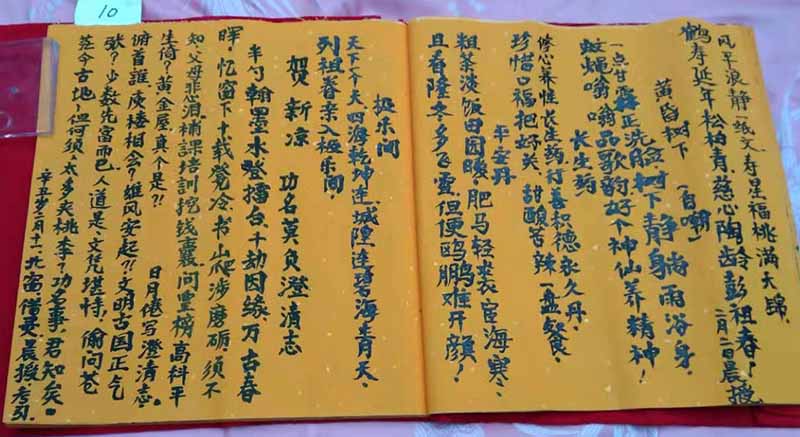 10
风平浪静一纸文,寿星福桃满天歸。
鹤寿延年松柏青,慈心陶龄彭祖春! 二月二日晨援
黄昏树下 (自嘲)
一点甘霖正洗脸,树下静躺雨浴身。
蚊蝇嗡嗡品歌韵,好个神仙养精神!
长生药
修心养性长生药,行善积德永久丹。
珍惜口福把好关、甜酸苦辣一盘餐。
平安丹
粗茶淡饭田园暖,肥马轻裘宦海寒、
且看隆冬多飞雪,但使鸥鹏难开颜!
极乐间
天下今天四海乾坤连,城隍连碧海青天。
列祖眷亲入极乐间。
贺新凉 功名莫负澄清志
半勺翰墨水,登擂台、千劫因缘,万古春
晖。忆窗下十载凳冷,书山爬涉磨砺,须不
知、父母悲心泪。补课培训挖钱囊、问里榜高科平
生倚?黄金屋,真个是?! 日月倦写澄清志。
俯首谁、庾楼相念?雄风安起?!文明古国正气
欤?少数先富而已。人道是、文凭堪恃!偷问苍
茫今古地,但何须、太多夹桃李?功名事,君知矣。
辛丑岁二月十一 北窗借录、晨援考引.